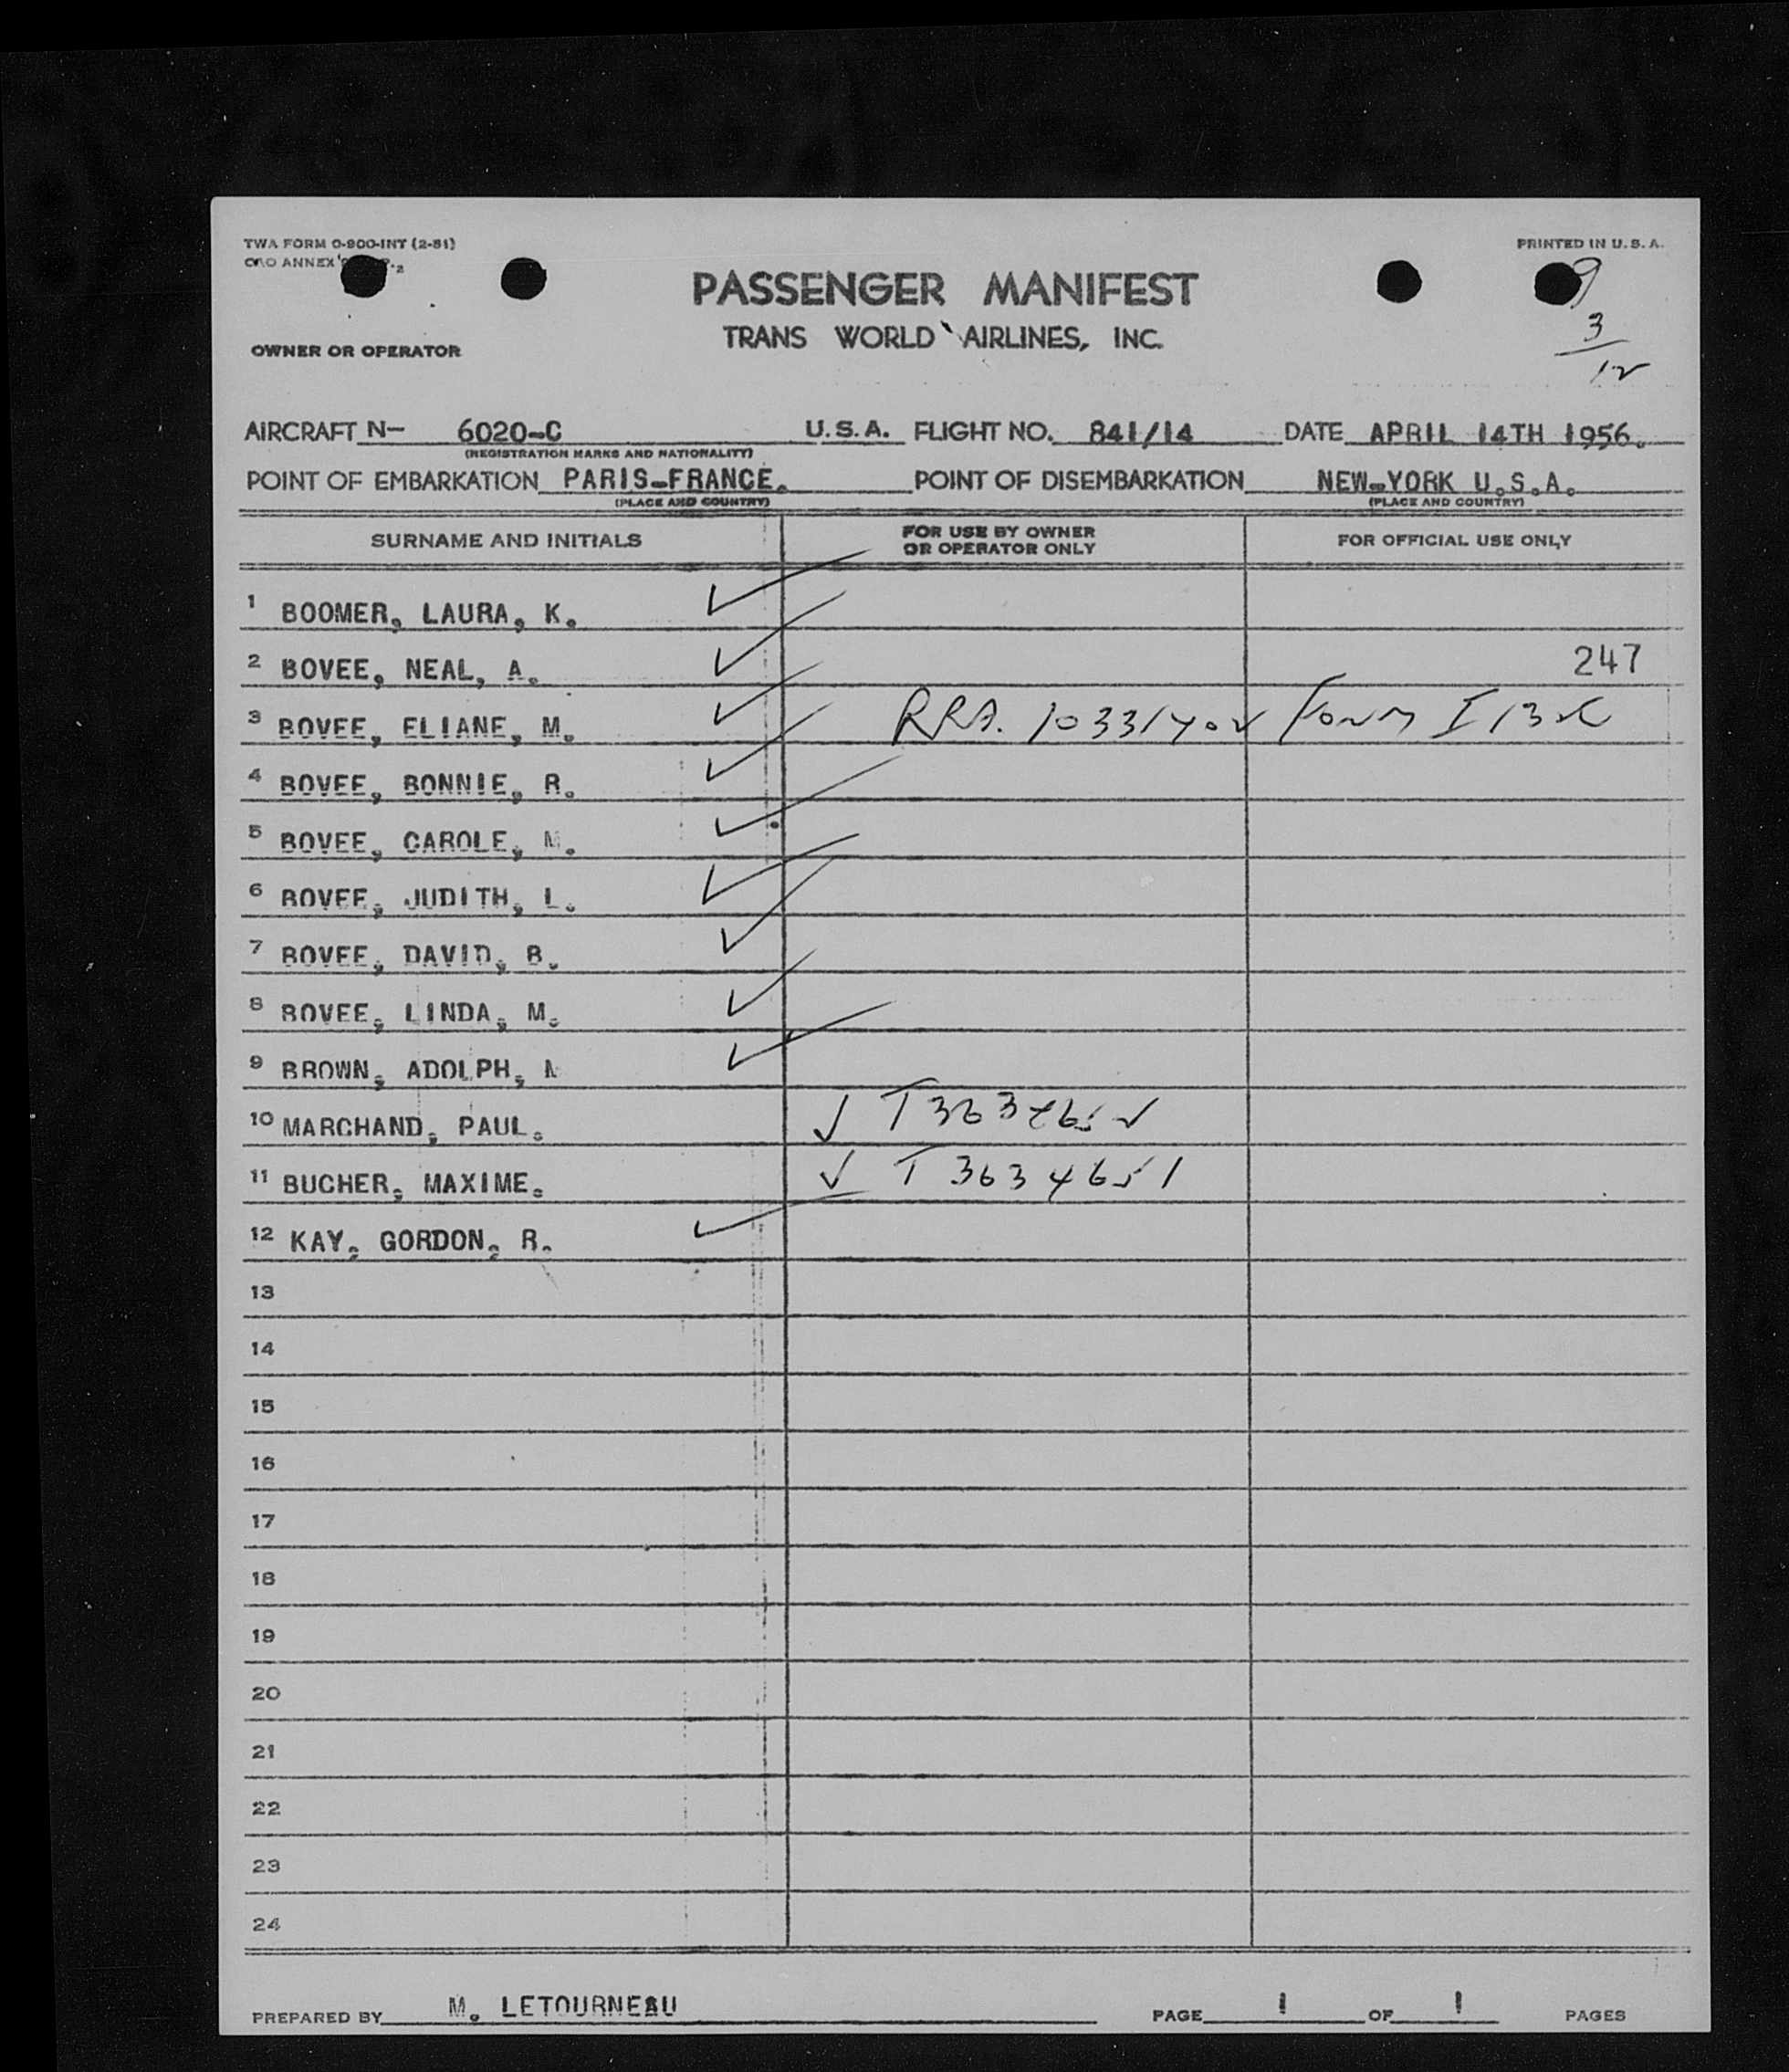 TWA FORM 0-900-INT (2-51)
PRINTED IN U.S.A.
ANNEX
PASSENGER MANIFEST
9
TRANS WORLD AIRLINES, INC.
3
OWNER OR OPERATOR
12
AIRCRAFT N- 6020-C U.S.A. FLIGHT NO. 841/14 DATE APRIL 14TH 1956.
(REGISTRATION MARKS AND NATIONALITY)
POINT OF EMBARKATION PARIS-FRANCE. POINT OF DISEMBARKATION NEW-YORK U.S.A.
(PLACE AND COUNTRY) (PLACE AND COUNTRY)
SURNAME AND INITIALS FOR USE BY OWNER OR OPERATOR ONLY FOR OFFICIAL USE ONLY
1 BOOMER, LAURA, K.
2 BOVEE, NEAL, A. 247
3 BOVEE, ELIANE, M. RRA. Form I
4 BOVEE, BONNIE, R.
5 BOVEE, CAROLE, M.
6 BOVEE, JUDITH, L.
7 BOVEE, DAVID, B.
8 BOVEE, LINDA, M.
9 BROWN, ADOLPH,
10 MARCHAND, PAUL.
11 BUCHER, MAXIME. T 3634651
12 KAY, GORDON, R.
13
14
15
16
17
18
19
20
21
22
23
24
PREPARED BY M. LETOURNEAU PAGE 1 OF 1 PAGES